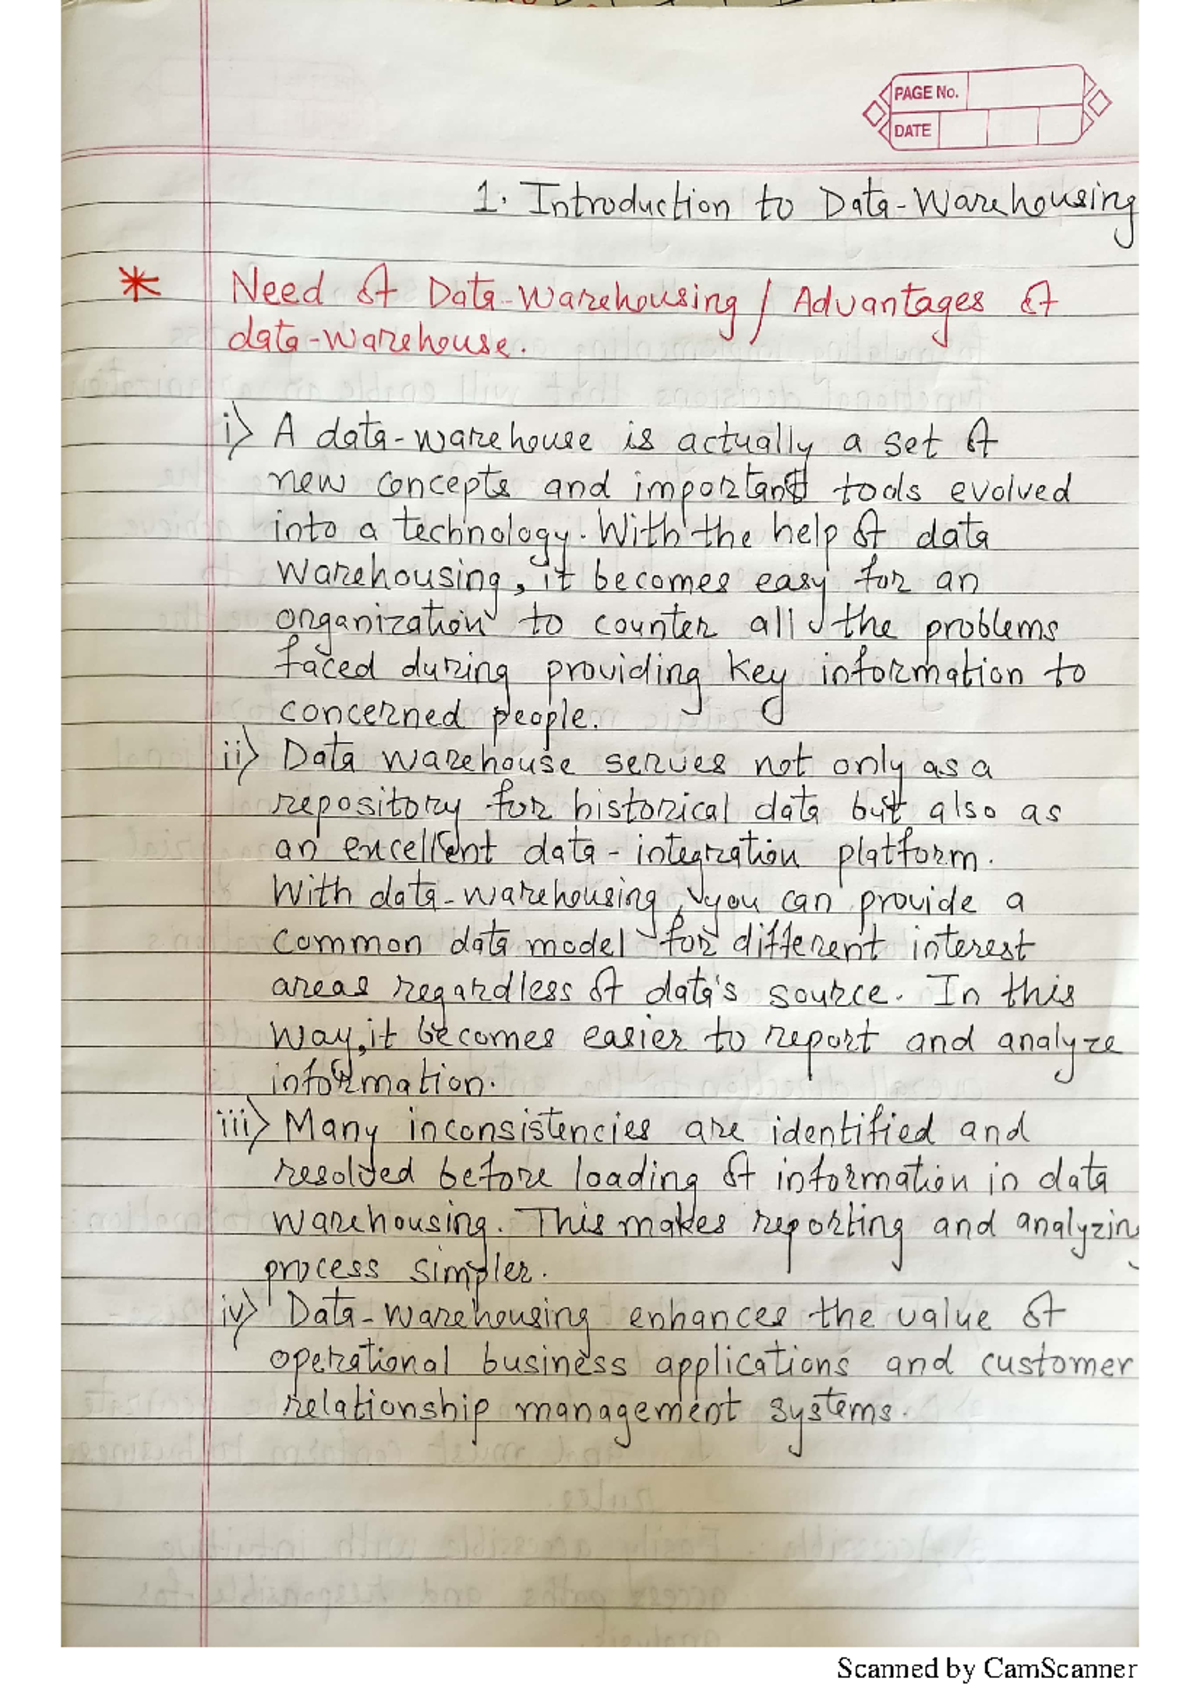 PAGE No.
DATE
1. Introduction to Data-Warehousing
* Need of Data-Warehousing / Advantages of
data-warehouse.
i) A data-warehouse is actually a set of
new concepts and important tools evolved
into a technology. With the help of data
warehousing, it becomes easy for an
organization to counter all the problems
faced during providing key information to
concerned people.
ii) Data warehouse serves not only as a
repository for historical data but also as
an excellent data-integration platform.
With data-warehousing, you can provide a
common data model for different interest
areas regardless of data's source. In this
way, it becomes easier to report and analyze
information.
iii) Many inconsistencies are identified and
resolved before loading of information in data
warehousing. This makes reporting and analyzing
process simpler.
iv) Data-warehousing enhances the value of
operational business applications and customer
relationship management systems.
Scanned by CamScanner